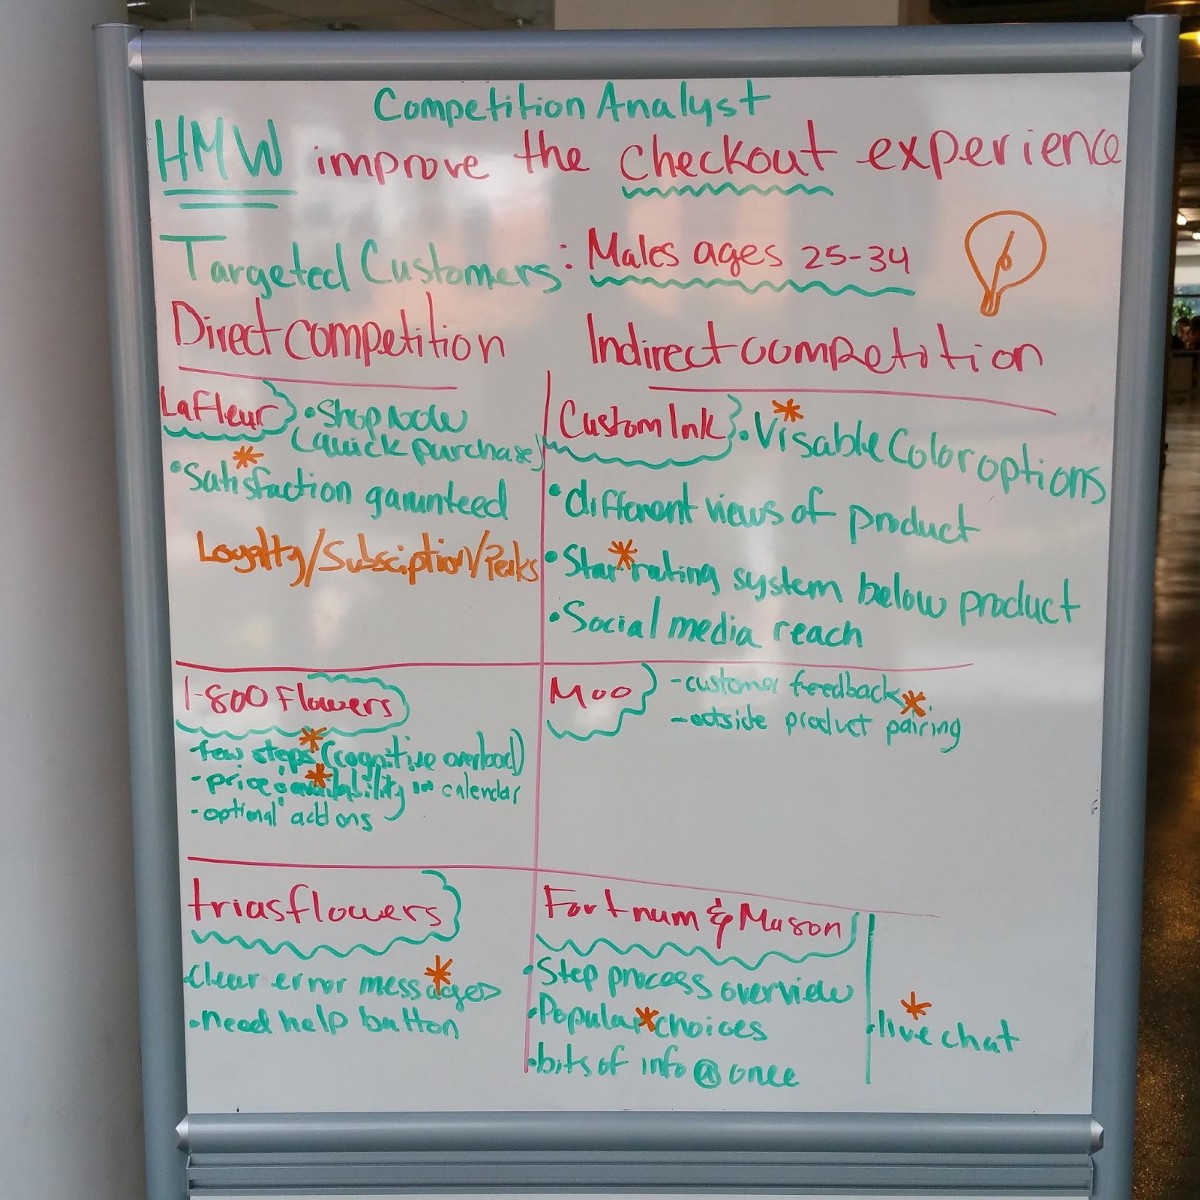 Competition Analyst
HMW improve the checkout experience
Targeted Customers: Males ages 25-34
Direct competition
Indirect competition
LaFleur
• Shop now
(quick purchase)
• Satisfaction garunteed
Loyalty/Subsciption/Perks
Custom Ink
• Visable Color options
• different views of product
• Star rating system below product
• Social media reach
1-800 Flowers
- few steps (cognitive overload)
- price & availability in calendar
- optional add ons
Moo
- customer feedback
- outside product pairing
triasflowers
• Clear error messages
• need help button
Fortnum & Mason
• Step process overview
• Popular choices
• bits of info @ once
• live chat